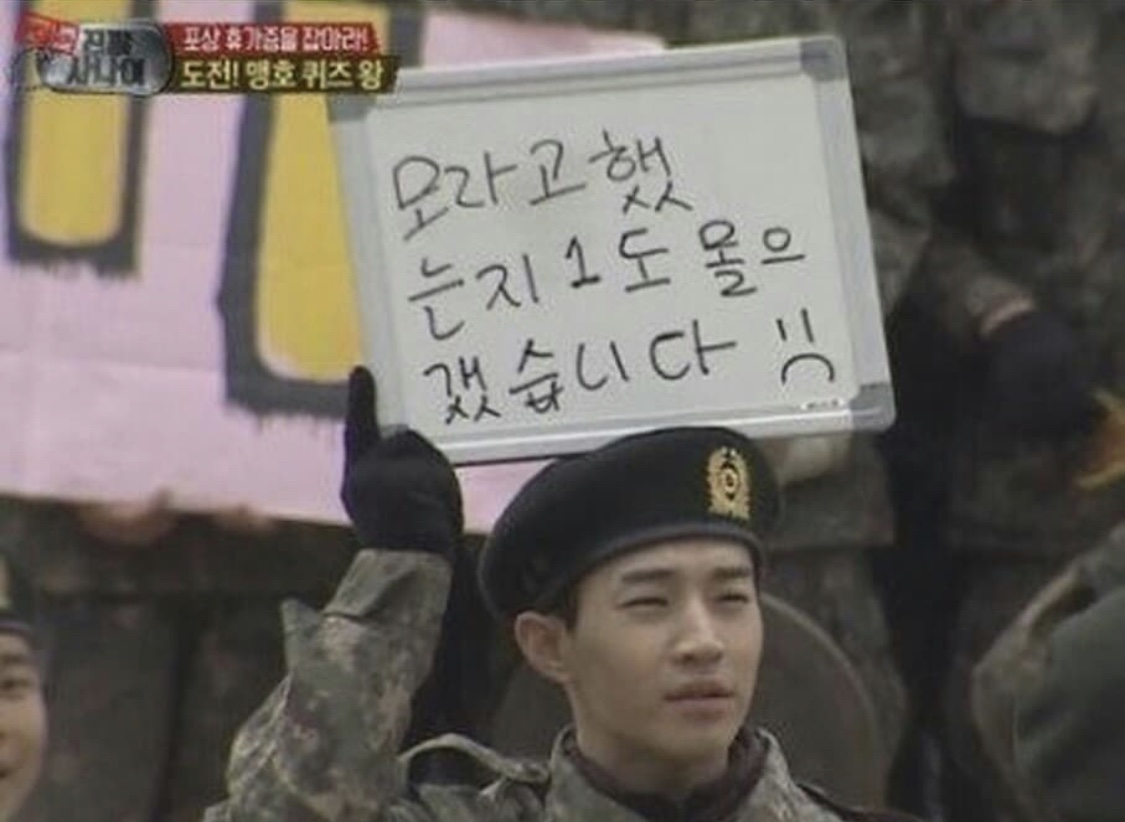 진짜
사나이
포상 휴가증을 잡아라!
도전! 맹호 퀴즈 왕
모라고했
는지 1도 몰으
갰습니다 :(